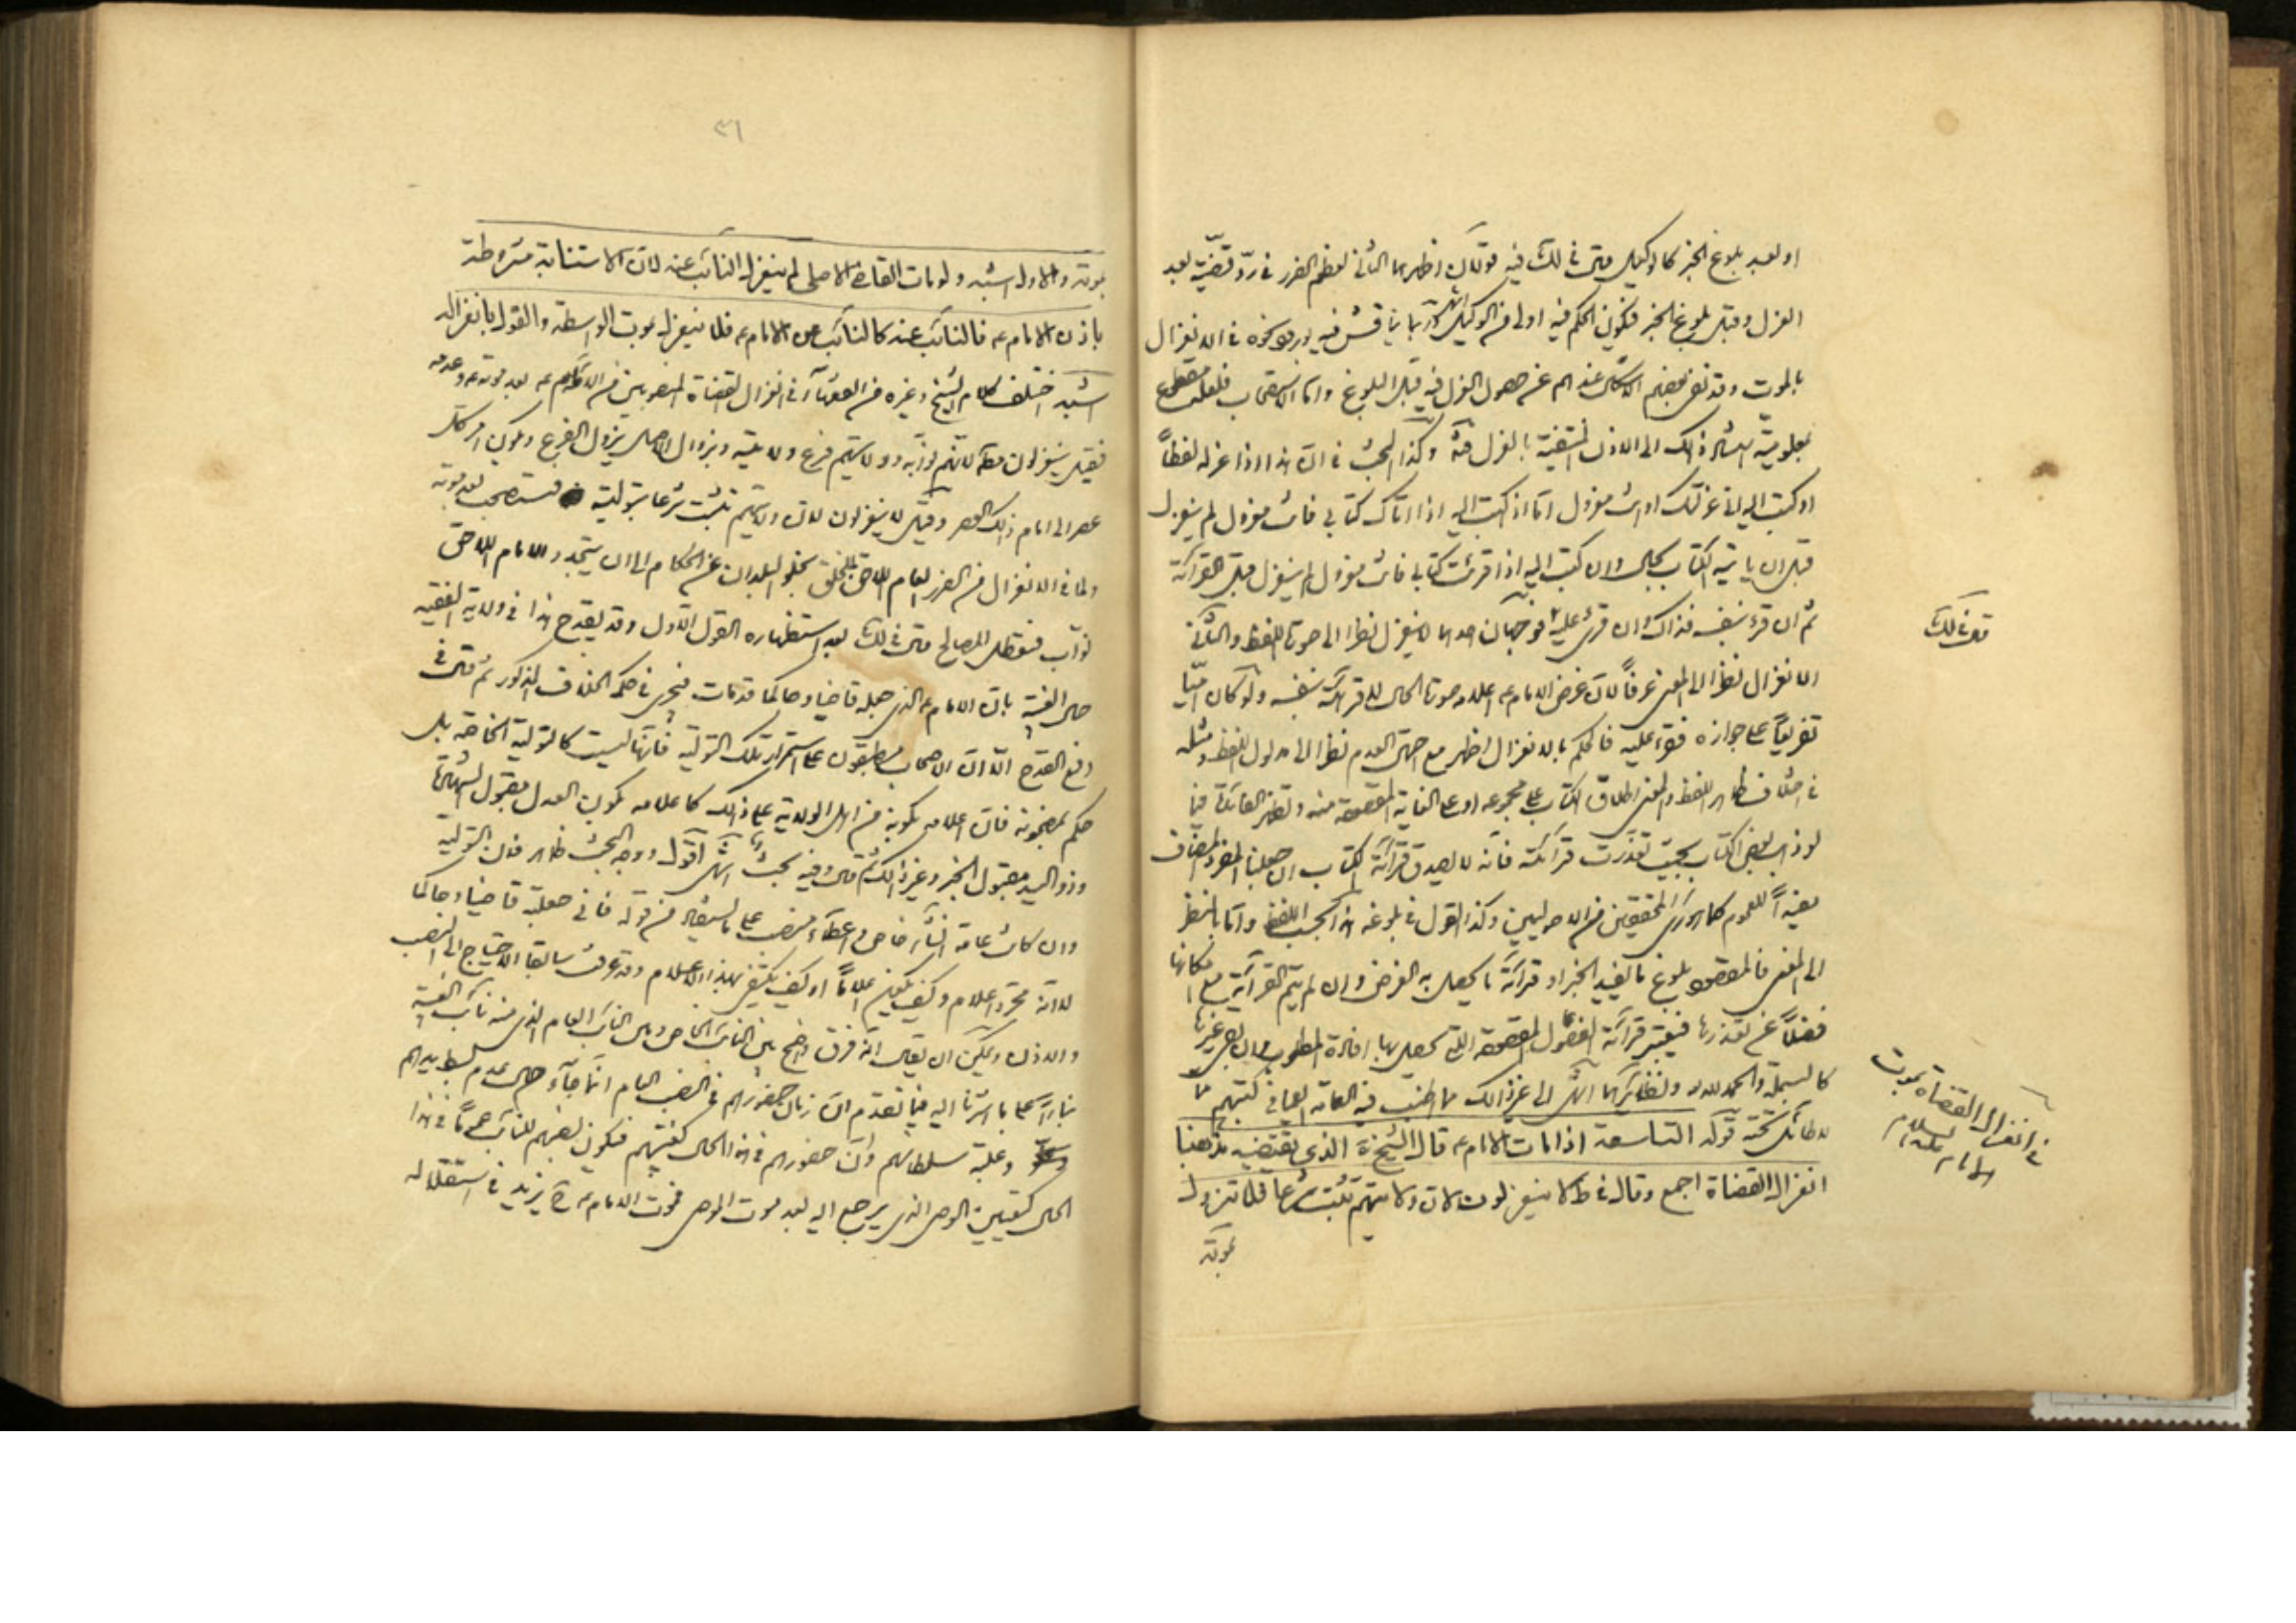 او بعد بلوغ الخبر كالوكيل قال في لك فيه قولان اظهرهما الثاني لعظم الضرر في ردّ قضيّته بعد
العزل وقبل بلوغ الخبر فيكون الحكم فيه اولى من الوكيل انتهى فيه نحوه في الانعزال
بالموت وقد نفى بعضهم الاشكال عندهم عن حصول العزل فيه قبل البلوغ واما الاستصحاب
بمعلومية ذلك الى الاذن المنتفية بالعزل وكذا البحث في ان هذا اذا عزله لفظاً
او كتب اليه اني عزلتك او انت معزول اما اذا كتب اليه اذا اتاك كتابي فانت معزول لم ينعزل
قبل ان ياتيه الكتاب بحال وان كتب اليه اذا قرئت كتابي فانت معزول لم ينعزل قبل القرائة
ثم ان قرء بنفسه فذاك وان قرئ عليه فوجهان احدهما لا ينعزل نظرا الى صورة اللفظ والثاني
الانعزال نظرا الى المعنى عرفاً لان غرض الامام ع اعلامه صورة الحال لا قرائته بنفسه ولو كان اميّا
تفريعاً على جوازه فقرء عليه فالحكم بالانعزال اظهر مع احتمال العدم نظرا الى مدلول اللفظ ومثله
في اختلاف ظاهر اللفظ والمعنى اطلاق الكتاب على مجموعه او على الغاية المقصودة منه وتظهر الفائدة فيما
لو ذهب بعض الكتاب بحيث تعذّرت قرائته فانه لا يصدق قرائة الكتاب ان جعلنا المفرد المضاف
مفيداً للعموم كما هو رأى المحققين من الاصوليين وكذا القول في بلوغه هذا بحسب اللفظ واما بالنظر
الى المعنى فالمقصود بلوغ ما يفيد الخبر او قرائة ما يحصل به الغرض وان لم يتم القرائة مع امكانها
فضلاً عن تعذرها فيعتبر قرائة الفصول المقصودة التي تحصل بها افادة المطلوب دون غيرها
كالبسملة والحمد لله ونظائرهما انتهى الى غير ذلك مما اطنب فيه العامة العمياء في كتبهم مما
لا طائل تحته قوله التاسعة اذا مات الامام ع قال الشيخ ره الذي يقتضيه مذهبنا
انعزال القضاة اجمع وقال في ط لا ينعزلون لان ولايتهم تثبت شرعا فلا تزول
بموته
قوله في لك
في انعزال القضاة بموت
الامام عليه السلام
٣١
بموته والاول اشبه ولو مات القاضي الاصلي لم ينعزل النائب عنه لان الاستنابة مشروطة
باذن الامام ع فالنائب عنه كالنائب عن الامام ع فلا ينعزل بموت الواسطة والقول بانعزاله
اشبه اختلف كلام الشيخ وغيره من الفقهاء في انعزال القضاة المنصوبين من الامام ع بعد موته ع وعدمه
فقيل ينعزلون مطلقا لانهم نوّابه وولايتهم فرع ولايته وبزوال الاصل يزول الفرع ويكون امر كل
عصر الى امام ذلك العصر وقيل لا ينعزلون لان ولايتهم تثبت شرعا بتوليته فتستصحب بعد موته
ولما في الانعزال من الضرر العام اللاحق للخلق بخلو البلدان عن الحكام الى ان يتجدد الامام اللاحق
نوّاب فتعطل المصالح قال في لك بعد استظهاره القول الاول وقد يقدح هذا في ولاية الفقيه
حال الغيبة بان الامام ع الذي جعله قاضيا وحاكما قد مات فيجري في حكمه الخلاف المذكور ثم قال في
دفع القدح الا ان الاصحاب مطبقون على استمرار تلك التولية فانها ليست كالتولية الخاصة بل
حكم بمضمونه فان اعلامه بكونه من اهل الولاية على ذلك كاعلامه بكون العدل مقبول الشهادة
وذو اليد مقبول الخبر وغير ذلك ثم قال وفيه بحث انتهى اقول ووجه البحث ظاهر فان التولية
وان كانت عامة النشأ خاص واعطاء منصب على ما يستفاد من قوله فاني جعلته قاضيا وحاكما
لا انه مجرد اعلام وكيف يكون اعلاماً او كيف يكتفى بهذا الاعلام وقد عرفت سابقا الاحتياج الى النصب
والاذن ويمكن ان يقال انه فرق واضح بين النائب الخاص وبين النائب العام الذي منه نائب الغيبة
بناءً على ما اشرنا اليه فيما تقدم ان زمان حضورهم في النصب العام انما جاء حال عدم بسط يدهم
وغلبة سلطانهم وان حضورهم في هذا الحال كغيبتهم فيكون نصبهم للنائب عموماً في هذا
الحال كتعيين الوصي الذي يرجع اليه بعد موت الموصي فموت الامام ع ح يزيد في استقلاله